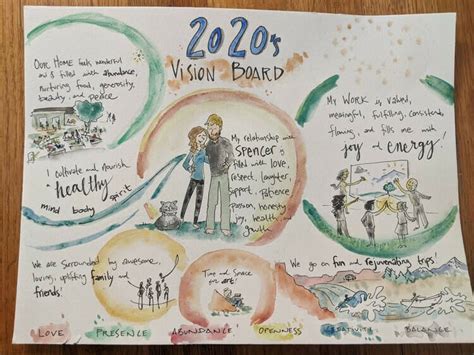 2020's
VISION BOARD
OUR HOME feels wonderful
and is filled with abundance,
nurturing food, generosity,
beauty and peace
I cultivate and nourish
a healthy
mind body spirit
My relationship with
SPENCER is
filled with love,
respect, laughter,
support, patience
passion, honesty
joy, health, and
growth
My WORK is valued,
meaningful, fulfilling, consistently
flowing, and fills me with
joy and energy!
We are surrounded by awesome,
loving, uplifting family and
friends!
Time and Space
for art!
We go on fun and rejuvenating trips!
LOVE PRESENCE ABUNDANCE OPENNESS CREATIVITY BALANCE